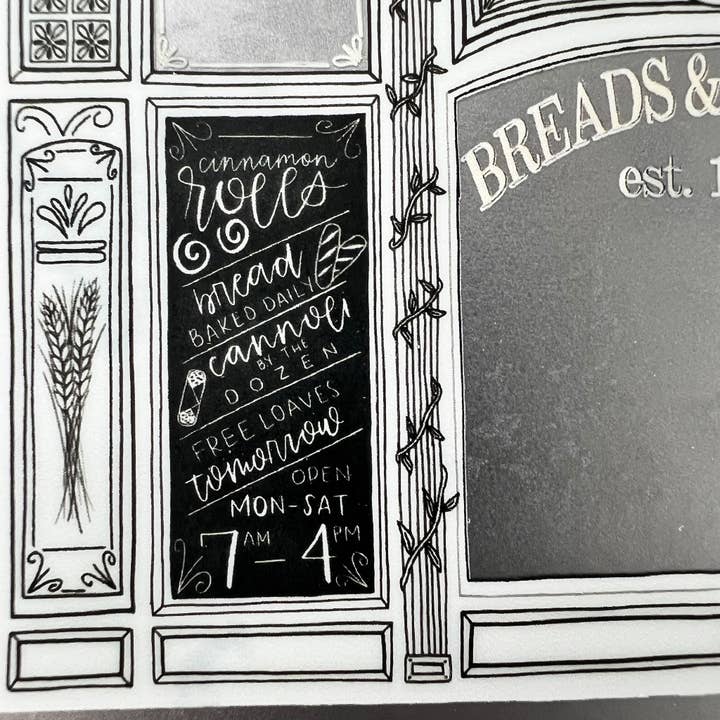 cinnamon
rolls
bread
BAKED DAILY
cannoli
BY THE
DOZEN
FREE LOAVES
tomorrow
OPEN
MON-SAT
7AM - 4PM
BREADS &
est. 1